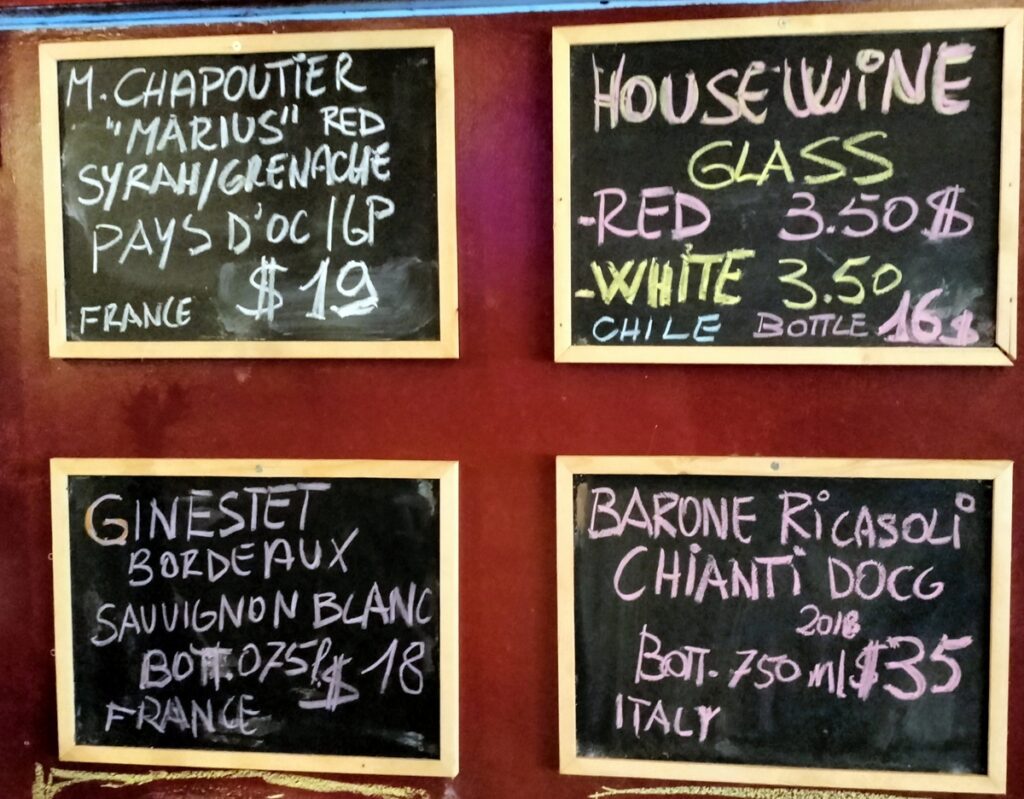 M. CHAPOUTIER
"MARIUS" RED
SYRAH/GRENACHE
PAYS D'OC IGP
$ 19
FRANCE
HOUSE WINE
GLASS
-RED 3.50 $
-WHITE 3.50
CHILE BOTTLE 16$
GINESTET
BORDEAUX
SAUVIGNON BLANC
BOTT. 075l $ 18
FRANCE
BARONE RICASOLI
CHIANTI DOCG
2018
BOTT. 750 ml $35
ITALY